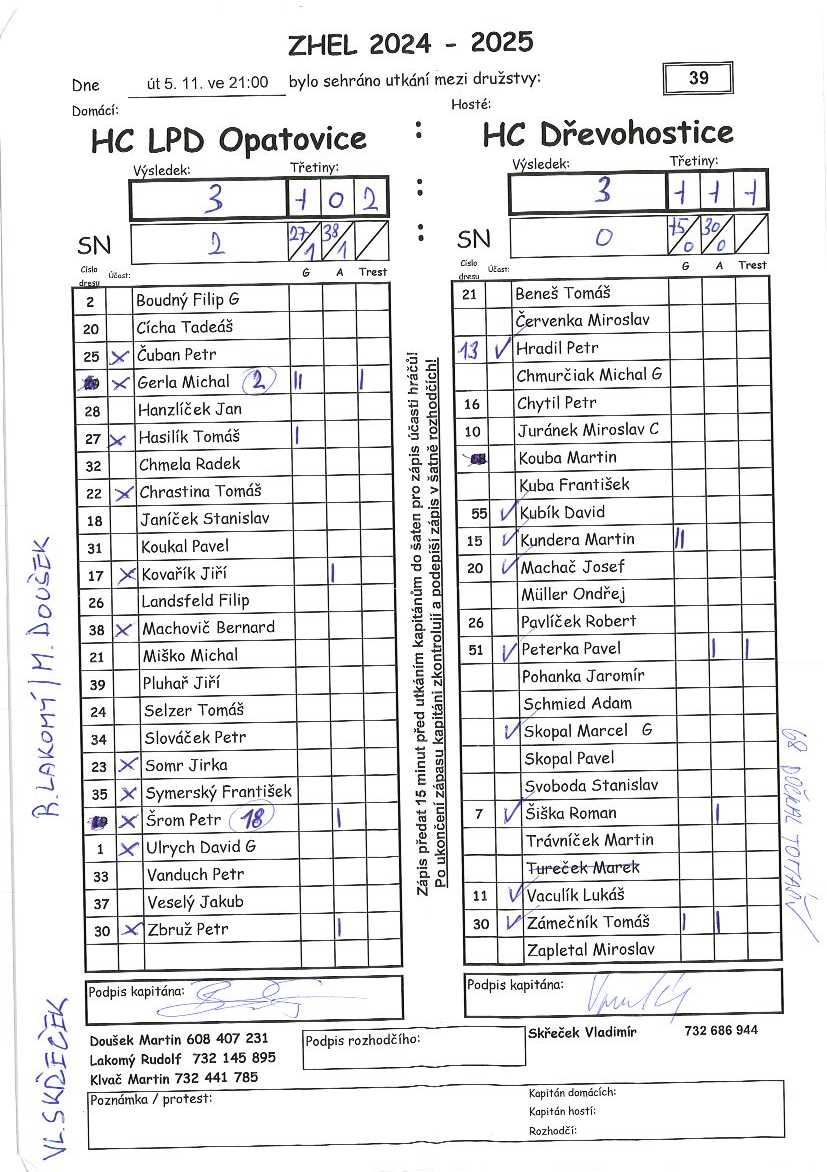 ZHEL 2024 - 2025
Dne út 5. 11. ve 21:00 bylo sehráno utkání mezi družstvy: 39
Domácí: Hosté:
HC LPD Opatovice : HC Dřevohostice
Výsledek: Třetiny: Výsledek: Třetiny:
3 1 0 2 : 3 1 1 1
SN 2 27/1 38/1 : SN 0 15/0 30/0
Číslo dresu Účast: G A Trest
2 Boudný Filip G
20 Cícha Tadeáš
25 X Čuban Petr
X Gerla Michal 2 II I
28 Hanzlíček Jan
27 X Hasilík Tomáš I
32 Chmela Radek
22 X Chrastina Tomáš
18 Janíček Stanislav
31 Koukal Pavel
17 X Kovařík Jiří I
26 Landsfeld Filip
38 X Machovič Bernard
21 Miško Michal
39 Pluhař Jiří
24 Selzer Tomáš
34 Slováček Petr
23 X Somr Jirka
35 X Symerský František
X Šrom Petr 18 I
1 X Ulrych David G
33 Vanduch Petr
37 Veselý Jakub
30 X Zbruž Petr I
Zápis předat 15 minut před utkáním kapitánům do šaten pro zápis účasti hráčů!
Po ukončení zápasu kapitáni zkontrolují a podepíší zápis v šatně rozhodčích!
Číslo dresu Účast: G A Trest
21 Beneš Tomáš
Červenka Miroslav
13 ✓ Hradil Petr
Chmurčiak Michal G
16 Chytil Petr
10 Juránek Miroslav C
Kouba Martin
Kuba František
55 ✓ Kubík David
15 ✓ Kundera Martin II
20 ✓ Machač Josef
Müller Ondřej
26 Pavlíček Robert
51 ✓ Peterka Pavel I I
Pohanka Jaromír
Schmied Adam
✓ Skopal Marcel G
Skopal Pavel
Svoboda Stanislav
7 ✓ Šiška Roman I
Trávníček Martin
Tureček Marek
11 ✓ Vaculík Lukáš
30 ✓ Zámečník Tomáš I I
Zapletal Miroslav
R. LAKOMÝ / M. DOUŠEK
VL. SKŘEČEK
68
Podpis kapitána: Podpis kapitána:
Doušek Martin 608 407 231
Lakomý Rudolf 732 145 895
Klvač Martin 732 441 785
Podpis rozhodčího:
Skřeček Vladimír 732 686 944
Poznámka / protest:
Kapitán domácích:
Kapitán hostí:
Rozhodčí: